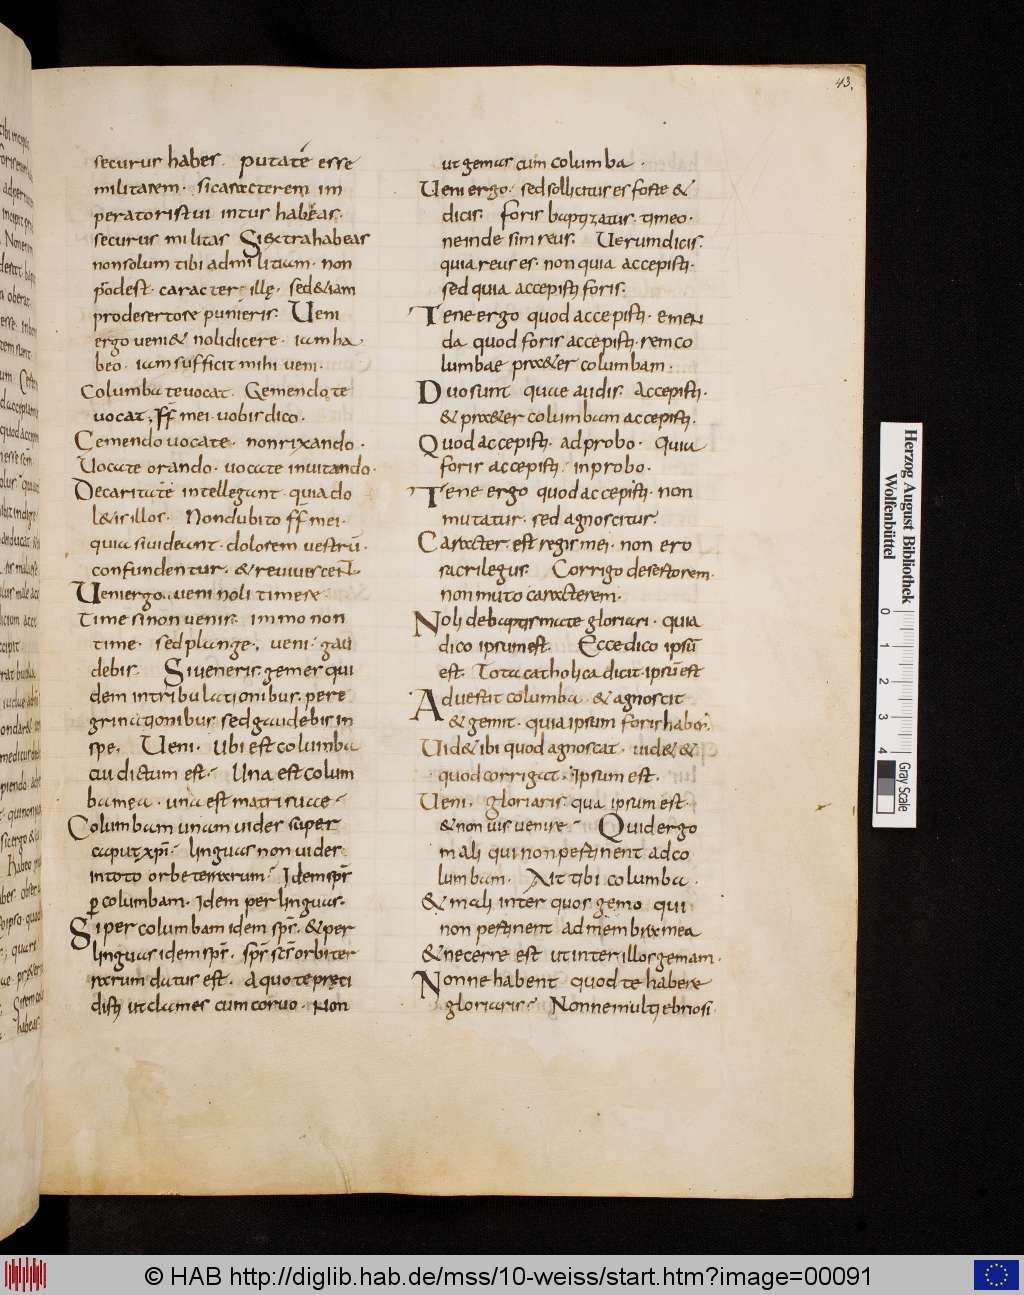 43.
securus habes. putate esse
militarem. si caracterem im
peratoris tui intus habeas.
securus militas Si extra habeas
non solum tibi ad militiam. non
prodest. caracter ille. sed &iam
pro desertore punieris. Veni
ergo veni & noli dicere. iam ha
beo. iam sufficit mihi veni.
Columba te vocat. Gemendo te
vocat; ff mei vobis dico.
Gemendo vocate. non rixando.
Vocate orando. vocate invitando.
De caritate intellegant. quia do
l&is illos. Non dubito ff mei.
quia si videant. dolorem vestrū.
confundentur. & reviviscent.
Veni ergo. veni noli timere
Time si non venis. immo non
time. sed plange. veni. gau
debis. Si veneris gemes qui
dem in tribulationibus. pere
grinationibus sed gaudebis in
spe. Veni. Ubi est columba
cui dictum est. Una est colum
ba mea. una est matri suae
Columbam unam vides super
caput xpi. linguas non vides
in toto orbe terrarum. Idem spr
p columbam. Idem per linguas.
Si per columbam idem spr. & per
linguas idem spr. spr scr orbi ter
rarum datus est. A quo te preci
disti ut clames cum corvo. Non
ut gemas cum columba.
Veni ergo. sed sollicitus es forte &
dicis. foris baptizatus. timeo.
ne inde sim reus. Verum dicis.
quia reus es. non quia accepisti.
sed quia accepisti foris.
Tene ergo quod accepisti. emen
da quod foris accepisti. rem co
lumbae praeter columbam.
Duo sunt quae audis. Accepisti.
& praeter columbam accepisti.
Quod accepisti. adprobo. quia
foris accepisti. inprobo.
Tene ergo quod accepisti. non
mutatur. sed agnoscitur.
Caracter est regis mei. non ero
sacrilegus. Corrigo desertorem.
non muto caracterem.
Noli de baptismate gloriari. quia
dico ipsum est. Ecce dico ipsū
est Tota catholica dicit ipsū est
Advertit columba. & agnoscit
& gemit. quia ipsum foris habes.
Vid& ibi quod agnoscat. vid& &
quod corrigat. Ipsum est.
Veni. gloriaris. quia ipsum est.
& non vis venire. Quid ergo
mali qui non pertinent ad co
lumbam. Ait tibi columba.
& mali inter quos gemo qui
non pertinent ad membra mea
& necerre est ut inter illos gemam.
Nonne habent quod te habere
gloriaris. Nonne multi ebriosi.
Herzog August Bibliothek
Wolfenbüttel
0 1 2 3 4
Gray Scale
© HAB http://diglib.hab.de/mss/10-weiss/start.htm?image=00091